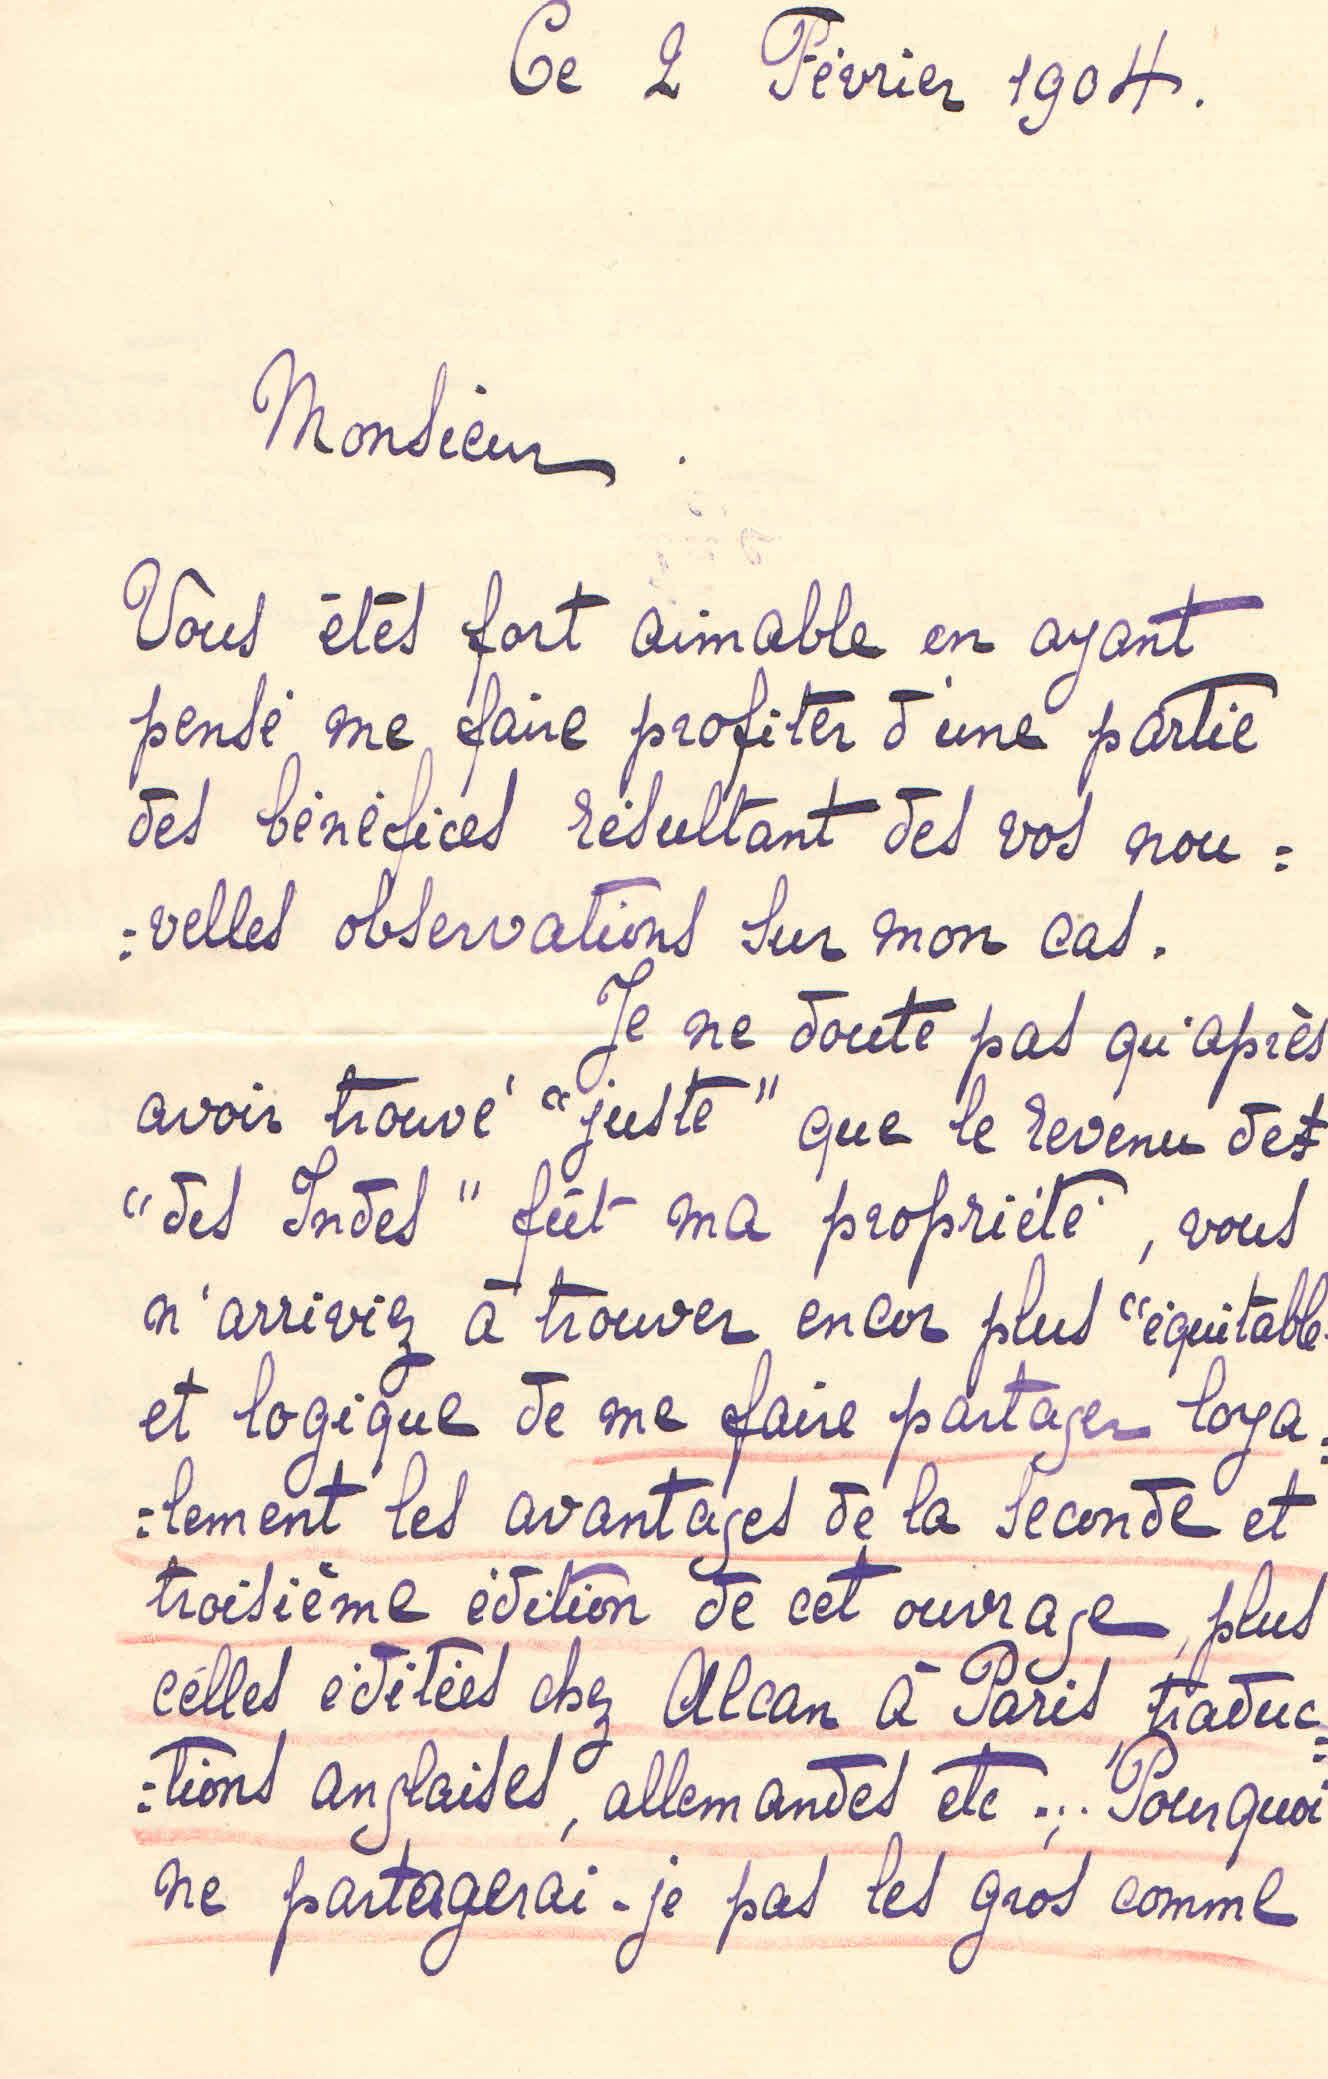 Ce 2 Février 1904.
Monsieur.
Vous êtes fort aimable en ayant
pensé me faire profiter d'une partie
des bénéfices résultant des vos nou=
=velles observations sur mon cas.
Je ne doute pas qu'après
avoir trouvé "juste" que le revenu des
"des Indes" fût ma propriété, vous
n'arriviez à trouver encor plus "équitable
et logique de me faire partager loya=
=lement les avantages de la seconde et
troisième édition de cet ouvrage, plus
celles éditées chez Alcan à Paris, traduc=
=tions anglaises, allemandes etc... Pourquoi
ne partagerai-je pas les gros comme